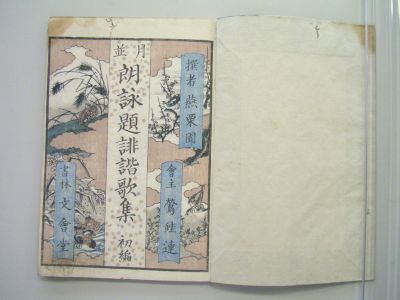 月並
朗詠題誹諧歌集 初編
撰者 燕栗園
會主 鶯蛙連
書林 文會堂